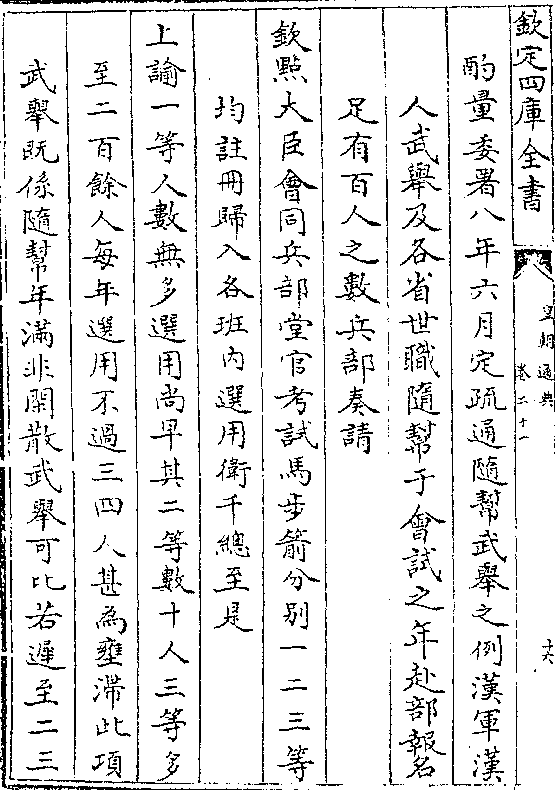 欽定四庫全書
皇朝通典
卷二十一
十六
酌量委署八年六月定疏通隨幫武舉之例漢軍漢
人武舉及各省世職隨幫于會試之年赴部報名
足有百人之數兵部奏請
欽點大臣會同兵部堂官考試馬步箭分別一二三等
均註冊歸入各班內選用衛千總至是
上諭一等人數無多選用尚早其二等數十人三等多
至二百餘人每年選用不過三四人甚為壅滯此項
武舉既係隨幫年滿非閑散武舉可比若遲至二三